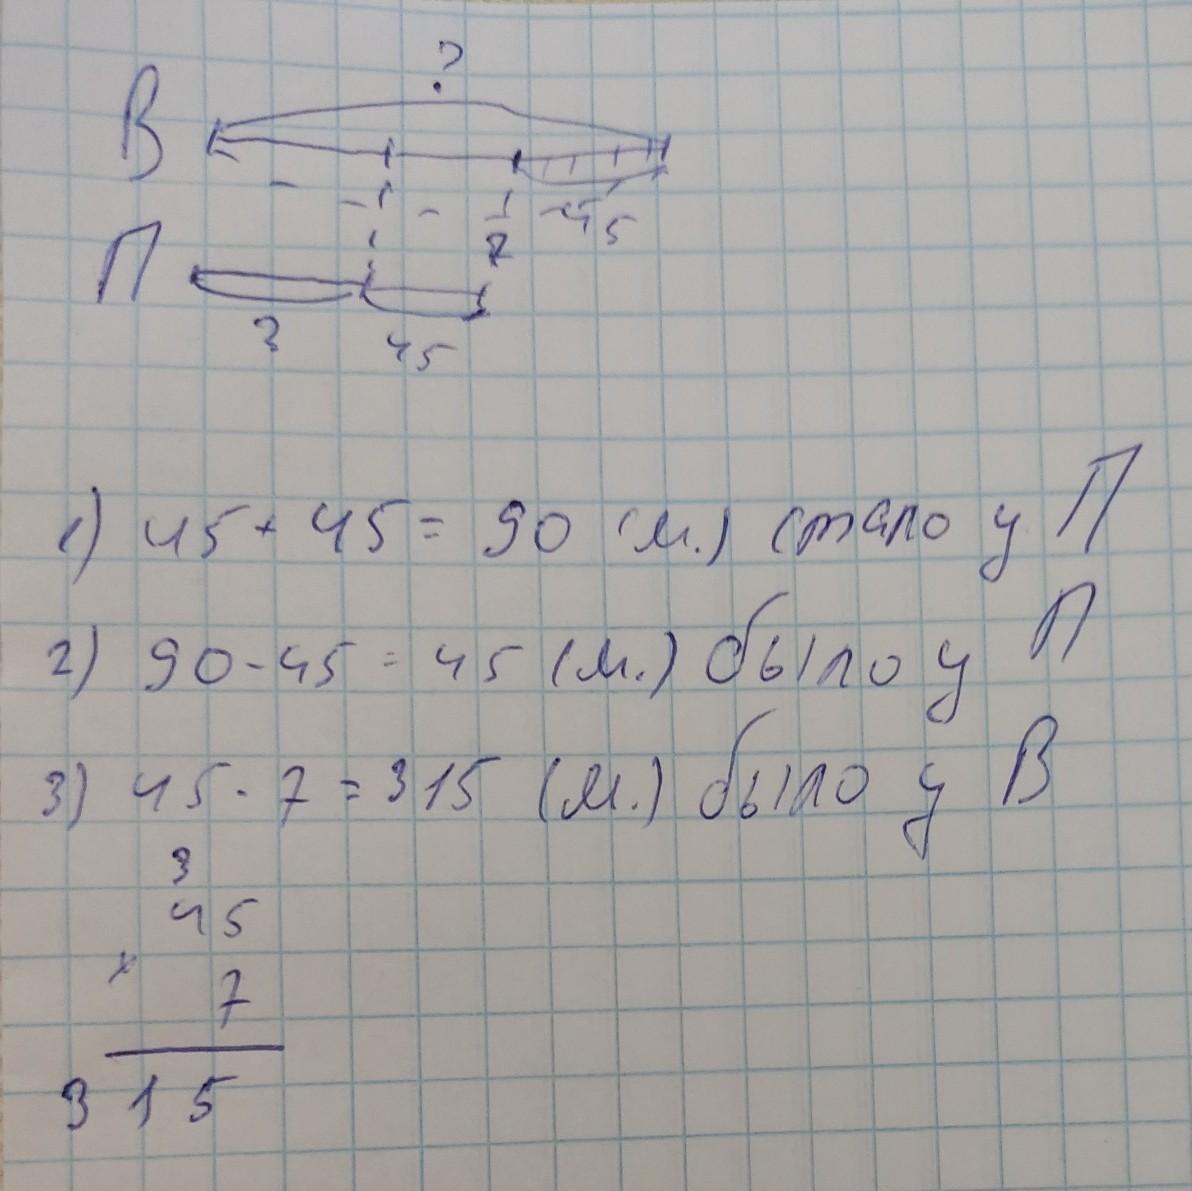 ?
В
45
П
? 45
1) 45 + 45 = 90 (м.) стало у П
2) 90 - 45 = 45 (м.) было у П
3) 45 · 7 = 315 (м.) было у В
3
45
x 7
315